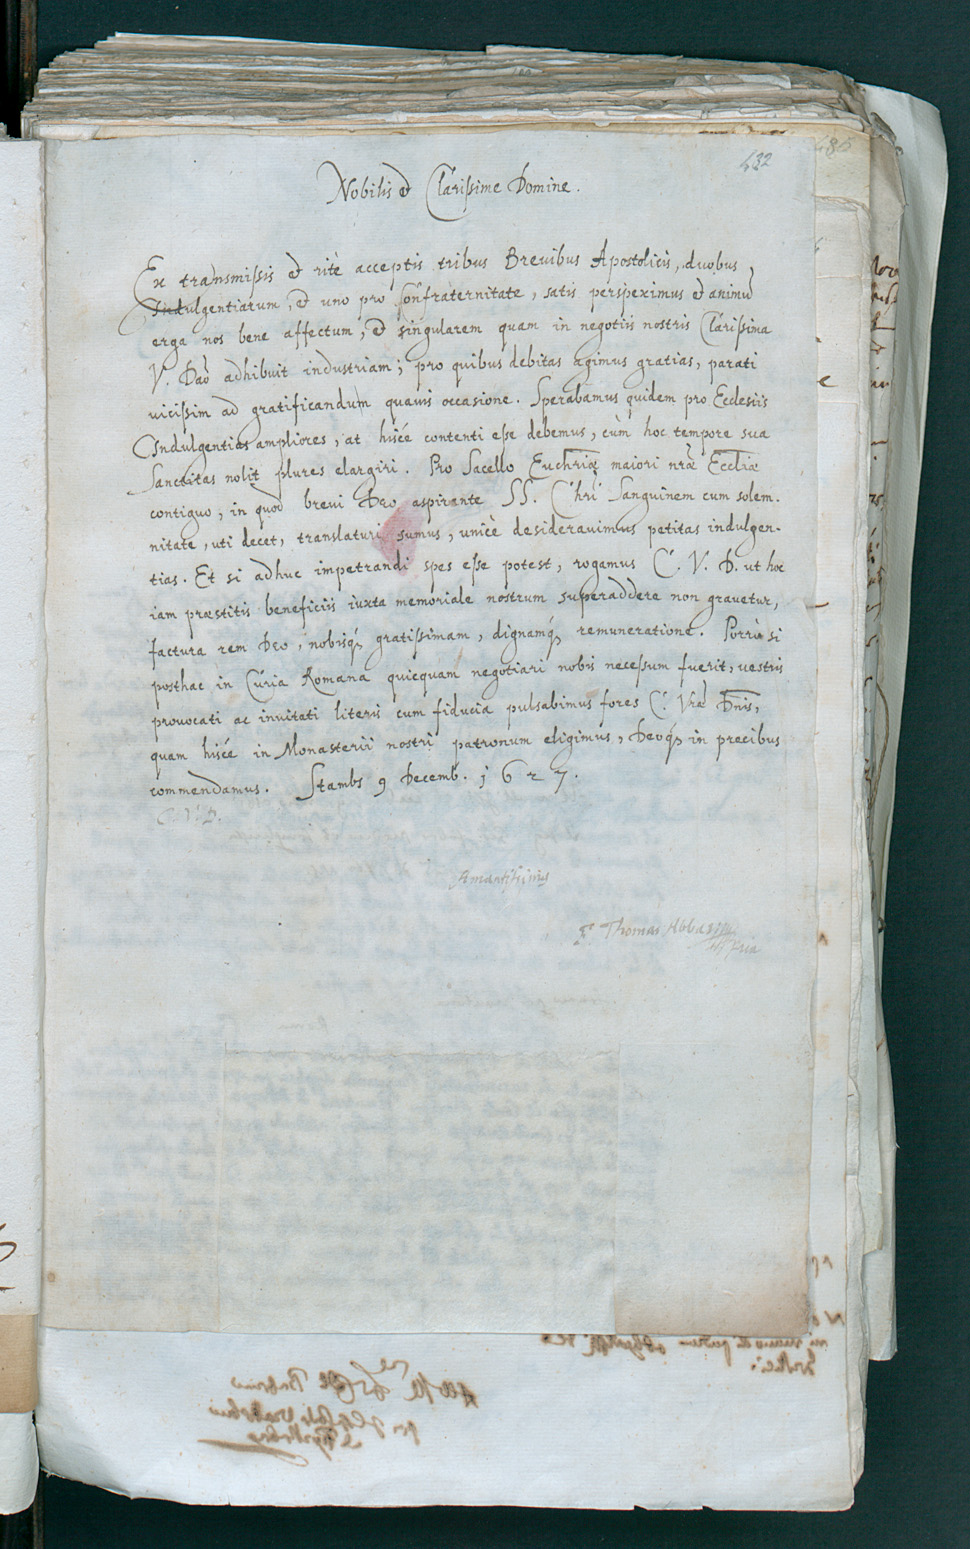 432
Nobilis et Clarissime Domine.
Ex transmissis et ritè acceptis tribus Brevibus Apostolicis, duobus
Indulgentiarum, et uno pro Confraternitate, satis perspeximus et animū
erga nos bene affectum, et singularem quam in negotiis nostris Clarissima
V. Dāo adhibuit industriam; pro quibus debitas agimus gratias, parati
vicissim ad gratificandum quavis occasione. Sperabamus quidem pro Ecclesiis
Indulgentias ampliores, at hisce contenti esse debemus, cùm hoc tempore sua
Sanctitas nolit plures elargiri. Pro Sacello Euchriæ maiori nræ Eccliæ
contiguo, in quod brevi Deo aspirante SS. Chri Sanguinem cum solem-
nitate, uti decet, translaturi sumus, unicè desideravimus petitas indulgen-
tias. Et si adhuc impetrandi spes esse potest, rogamus C. V. D. ut hoc
iam præstitis beneficiis iuxta memoriale nostrum superaddere non gravetur,
factura rem Deo, nobisq; gratissimam, dignamq; remuneratione. Porrò si
posthac in Curia Romana quicquam negotiari nobis necessum fuerit, vestris
provocati ac invitati literis cum fiducia pulsabimus fores C. Vræ Dnis,
quam hisce in Monasterii nostri patronum eligimus, Deoq; in precibus
commendamus. Stambs 9 Decemb. 1627.
C. V. D.
Amantissimus
Thomas Abbas